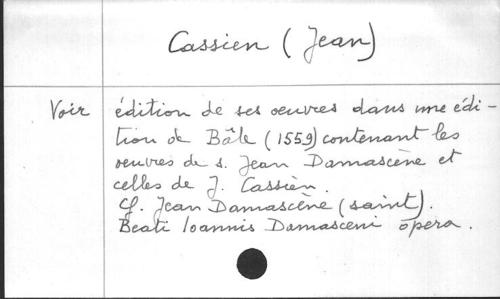 Cassien (Jean)
Voir édition de ses oeuvres dans une édi-
tion de Bâle (1559) contenant les
oeuvres de s. Jean Damascène et
celles de J. Cassien.
Cf. Jean Damascène (saint).
Beati Ioannis Damasceni opera.